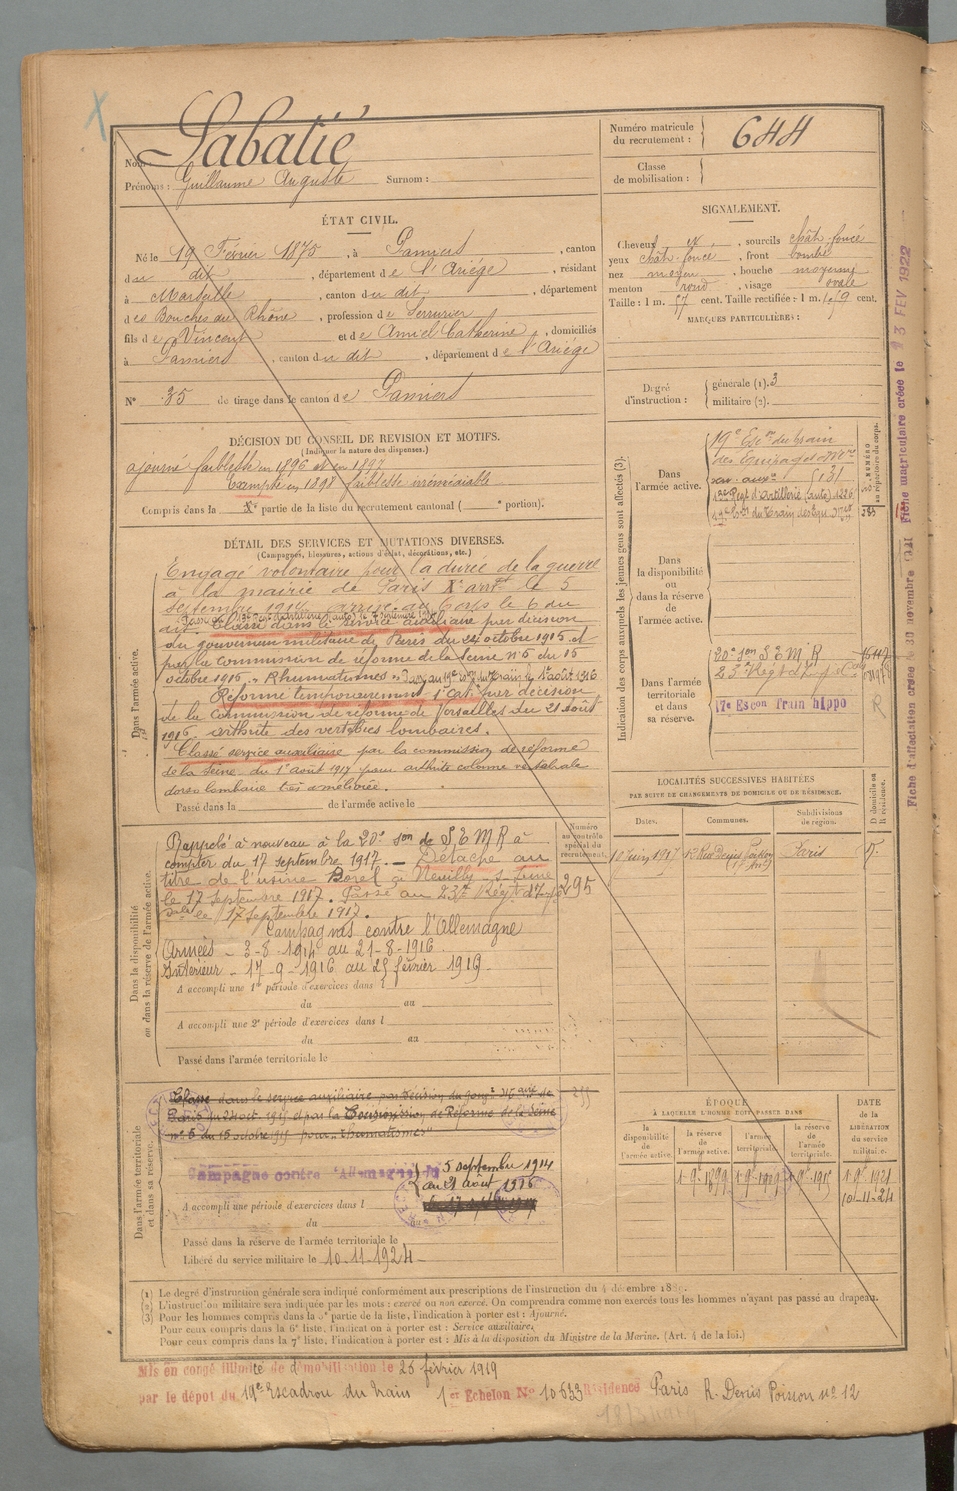 Nom : Sabatié
Prénoms : Guillaume Auguste Surnom :
Numéro matricule du recrutement : 644
Classe de mobilisation :
ÉTAT CIVIL.
Né le 19 Février 1875, à Pamiers, canton
du dit, département de l'Ariége, résidant
à Marseille, canton du dit, département
des Bouches du Rhône, profession de Serrurier
fils de Vincent et de Amiel Catherine, domiciliés
à Pamiers, canton du dit, département de l'Ariége
N° 35 de tirage dans le canton de Pamiers
SIGNALEMENT.
Cheveux et, sourcils chât. foncé
yeux chât. foncé, front bombé
nez moyen, bouche moyenne
menton rond, visage ovale
Taille : 1 m. 57 cent. Taille rectifiée : 1 m. 59 cent.
MARQUES PARTICULIÈRES :
Degré d'instruction : générale (1). 3
militaire (2).
DÉCISION DU CONSEIL DE REVISION ET MOTIFS.
(Indiquer la nature des dispenses.)
ajourné faiblesse en 1896 et en 1897
Exempté en 1898 faiblesse irrémédiable
Compris dans la X° partie de la liste du recrutement cantonal ( ° portion).
DÉTAIL DES SERVICES ET MUTATIONS DIVERSES.
(Campagnes, blessures, actions d'éclat, décorations, etc.)
Dans l'armée active.
Engagé volontaire pour la durée de la guerre
à la mairie de Paris X° arrt le 5
septembre 1914 arrivé au Corps le 6 du
dit. Classé dans le service auxiliaire par décision
du gouverneur militaire de Paris du 24 octobre 1915 et
par la commission de réforme de la Seine n° 5 du 15
octobre 1915 "Rhumatismes" Passé au 19e Esc. du Train le 1er août 1916
Réformé temporairement 1° Cat. par décision
de la Commission de réforme de Versailles du 21 août
1916. arthrite des vertèbres lombaires.
Classé service auxiliaire par la commission de réforme
de la Seine du 1er août 1917 pour arthrite colonne vertébrale
dorso lombaire très améliorée.
Passé dans la de l'armée active le
Dans la disponibilité ou dans la réserve de l'armée active.
Rappelé à nouveau à la 20e son de S E M R à
compter du 17 septembre 1917. — Détaché au
titre de l'usine Borel à Neuilly s/ Seine
le 17 septembre 1917. Passé au 23e Régt d'Inf.
colale le 17 septembre 1917.
Campagnes contre l'Allemagne
Armées - 3-8-1914 au 21-8-1916.
Intérieur - 17-9-1916 au 25 février 1919.
A accompli une 1re période d'exercices dans l
du au
A accompli une 2e période d'exercices dans l
du au
Passé dans l'armée territoriale le
Numéro au contrôle spécial du recrutement.
295
Indication des corps auxquels les jeunes gens sont affectés (3).
Dans l'armée active.
19e Escon du train
des Equipages Mres
ser. auxre 131
13e Regt d'Artillerie (auto) 1226
NUMÉRO au répertoire du corps.
Dans la disponibilité ou dans la réserve de l'armée active.
Dans l'armée territoriale et dans sa réserve.
20e son S E M R
23e Régt d'Inf. Cole
17e Escon Train hippo
R
Fiche matriculaire créée le 23 FEV 1922
Fiche d'affectation créée le 30 novembre
LOCALITÉS SUCCESSIVES HABITÉES
PAR SUITE DE CHANGEMENTS DE DOMICILE OU DE RÉSIDENCE.
Dates. Communes. Subdivisions de région. D domicile ou R résidence.
10 Juin 1917 12 Rue Denis Poisson Paris
Dans l'armée territoriale et dans sa réserve.
Classé dans le service auxiliaire par décision du Gouv. Mre de
Paris du 24 oct. 1915 et par la Commission de Réforme de la Seine
n° 5 du 15 octobre 1915 pour "rhumatismes"
Campagne contre l'Allemagne du 5 septembre 1914
au 21 août 1916
A accompli une période d'exercices dans l
du
Passé dans la réserve de l'armée territoriale le
Libéré du service militaire le 10.11.1924
ÉPOQUE
À LAQUELLE L'HOMME DOIT PASSER DANS
la disponibilité de l'armée active. la réserve de l'armée active. l'armée territoriale. la réserve de l'armée territoriale.
DATE de la LIBÉRATION du service militaire.
1-9bre-1899 1-9bre-1909 1-9bre-1915 1-9bre-1921
10-11-24
(1) Le degré d'instruction générale sera indiqué conformément aux prescriptions de l'instruction du 4 décembre 1889.
(2) L'instruction militaire sera indiquée par les mots : exercé ou non exercé. On comprendra comme non exercés tous les hommes n'ayant pas passé au drapeau.
(3) Pour les hommes compris dans la 5e partie de la liste, l'indication à porter est : Ajourné.
Pour ceux compris dans la 6e liste, l'indication à porter est : Service auxiliaire.
Pour ceux compris dans la 7e liste, l'indication à porter est : Mis à la disposition du Ministre de la Marine. (Art. 4 de la loi.)
Mis en congé illimité de démobilisation le 25 février 1919
par le dépot du 19e Escadron du train 1er Echelon N° 10633 Résidence Paris R. Denis Poisson n° 12